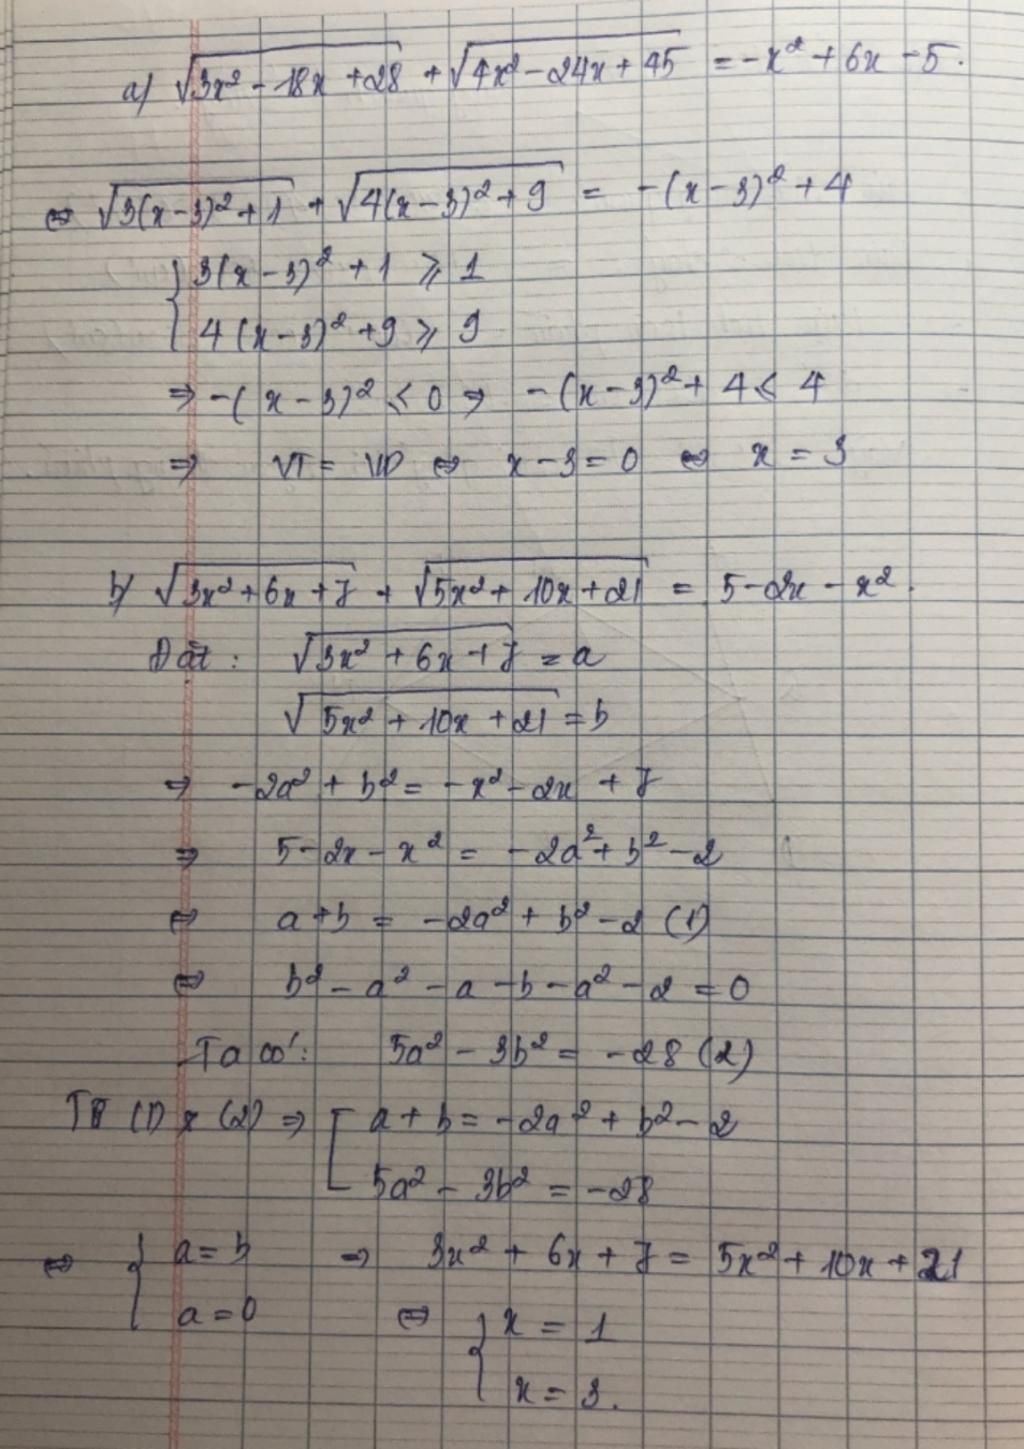 a) √(3x² - 18x + 28) + √(4x² - 24x + 45) = -x² + 6x - 5.
⇔ √(3(x-3)² + 1) + √(4(x-3)² + 9) = -(x-3)² + 4
{ 3(x-3)² + 1 ⩾ 1
4(x-3)² + 9 ⩾ 9
⇒ -(x-3)² ⩽ 0 ⇒ -(x-3)² + 4 ⩽ 4
⇒ VT = VP ⇔ x - 3 = 0 ⇔ x = 3
b) √(3x² + 6x + 7) + √(5x² + 10x + 21) = 5 - 2x - x².
Đặt: √(3x² + 6x + 7) = a
√(5x² + 10x + 21) = b
⇒ -2a² + b² = -x² - 2x + 7
⇒ 5 - 2x - x² = -2a² + b² - 2
⇔ a + b = -2a² + b² - 2 (1)
⇔ b² - a² - a - b - a² - 2 = 0
Ta có: 5a² - 3b² = -28 (2)
(1) (2) ⇒ [ a + b = -2a² + b² - 2
5a² - 3b² = -28
⇔ { a = b ⇒ 3x² + 6x + 7 = 5x² + 10x + 21
a = 0 ⇔ { x = 1
x = 3.